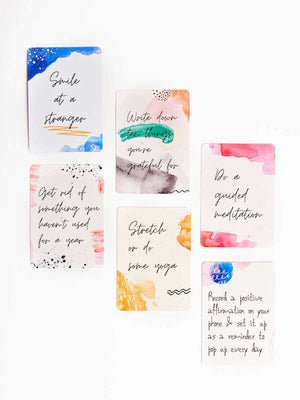 Smile
at a
stranger
Write down
ten things
you're
grateful for
Get rid of
something you
haven't used
for a year
Stretch
or do
some yoga
Do a
guided
meditation
Record a positive
affirmation on your
phone & set it up
as a reminder to
pop up every day